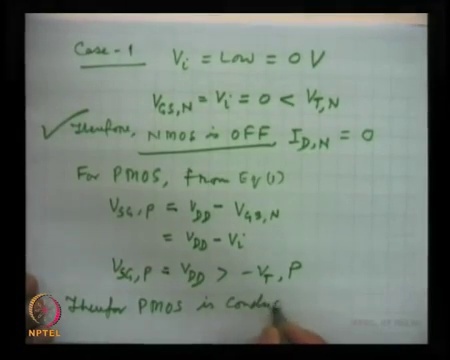 Case-1 Vi = Low = 0 V
VGS,N = Vi = 0 < VT,N
Therefore, NMOS is OFF, ID,N = 0
For PMOS, from Eq(1)
VSG,P = VDD - VGS,N
= VDD - Vi
VSG,P = VDD > -VT,P
Therefor PMOS is conduc
NPTEL